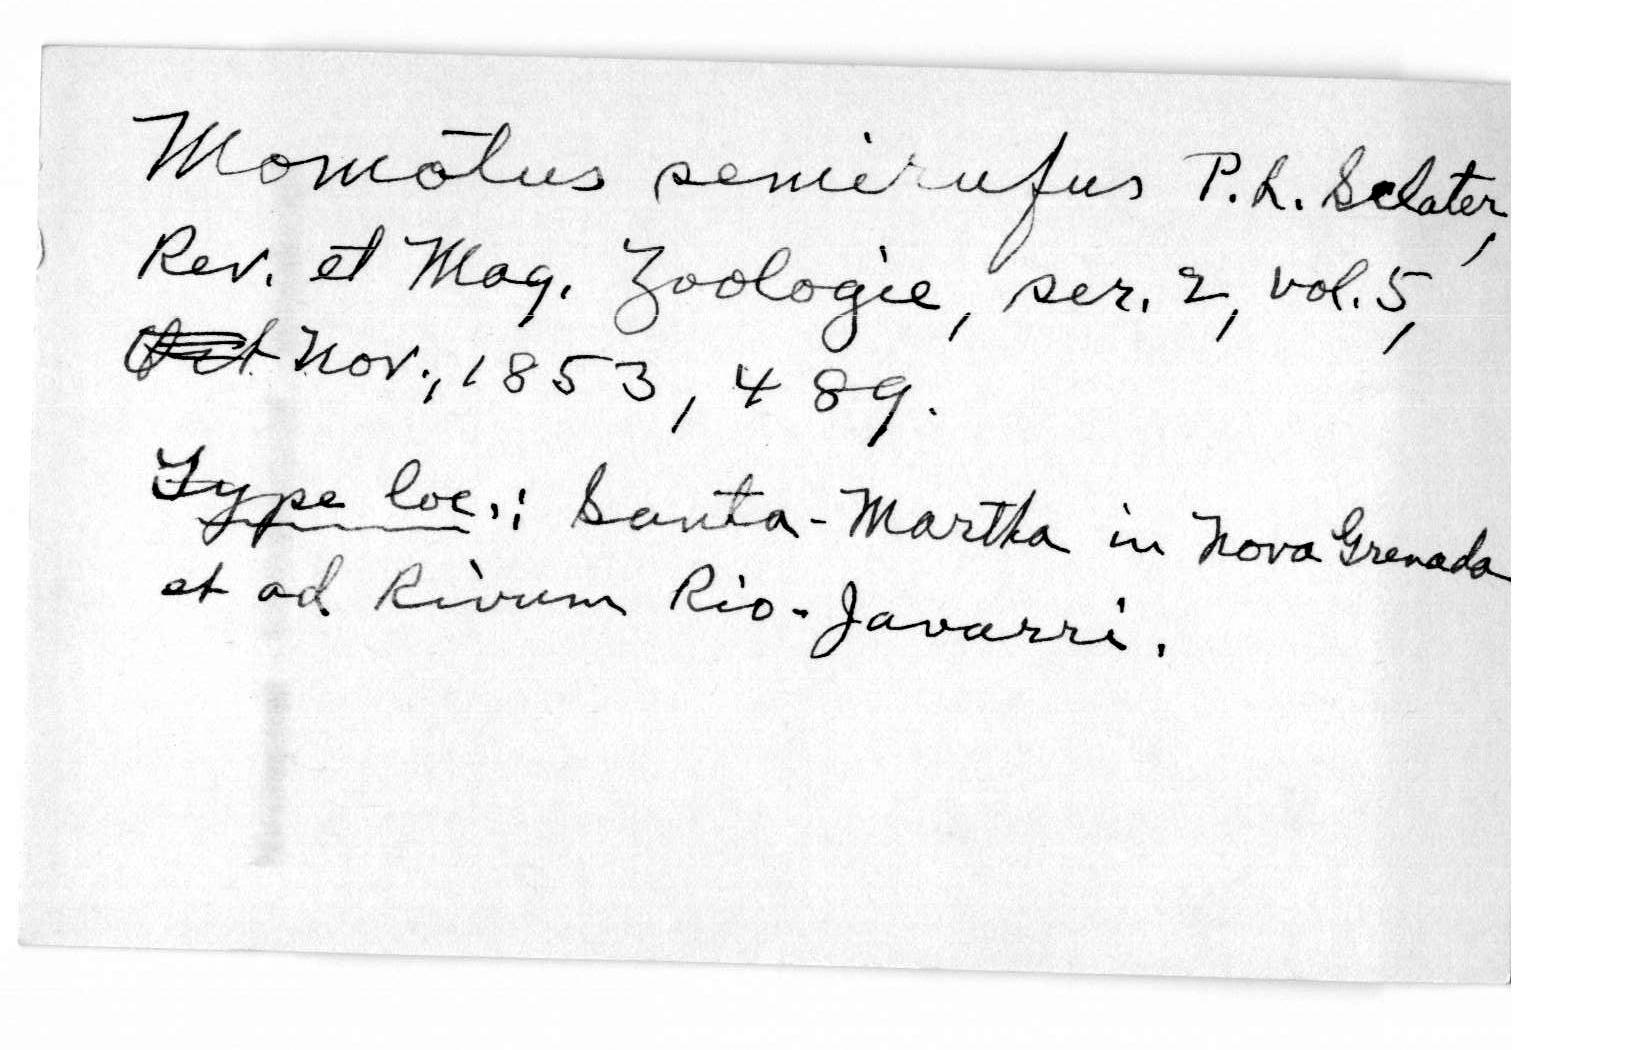 Momotus semirufus P.L. Sclater,
Rev. et Mag. Zoologie, ser. 2, vol. 5,
Nov., 1853, 489.
Type loc.: Santa-Martha in Nova Grenada
et ad Rivum Rio-Javarri.